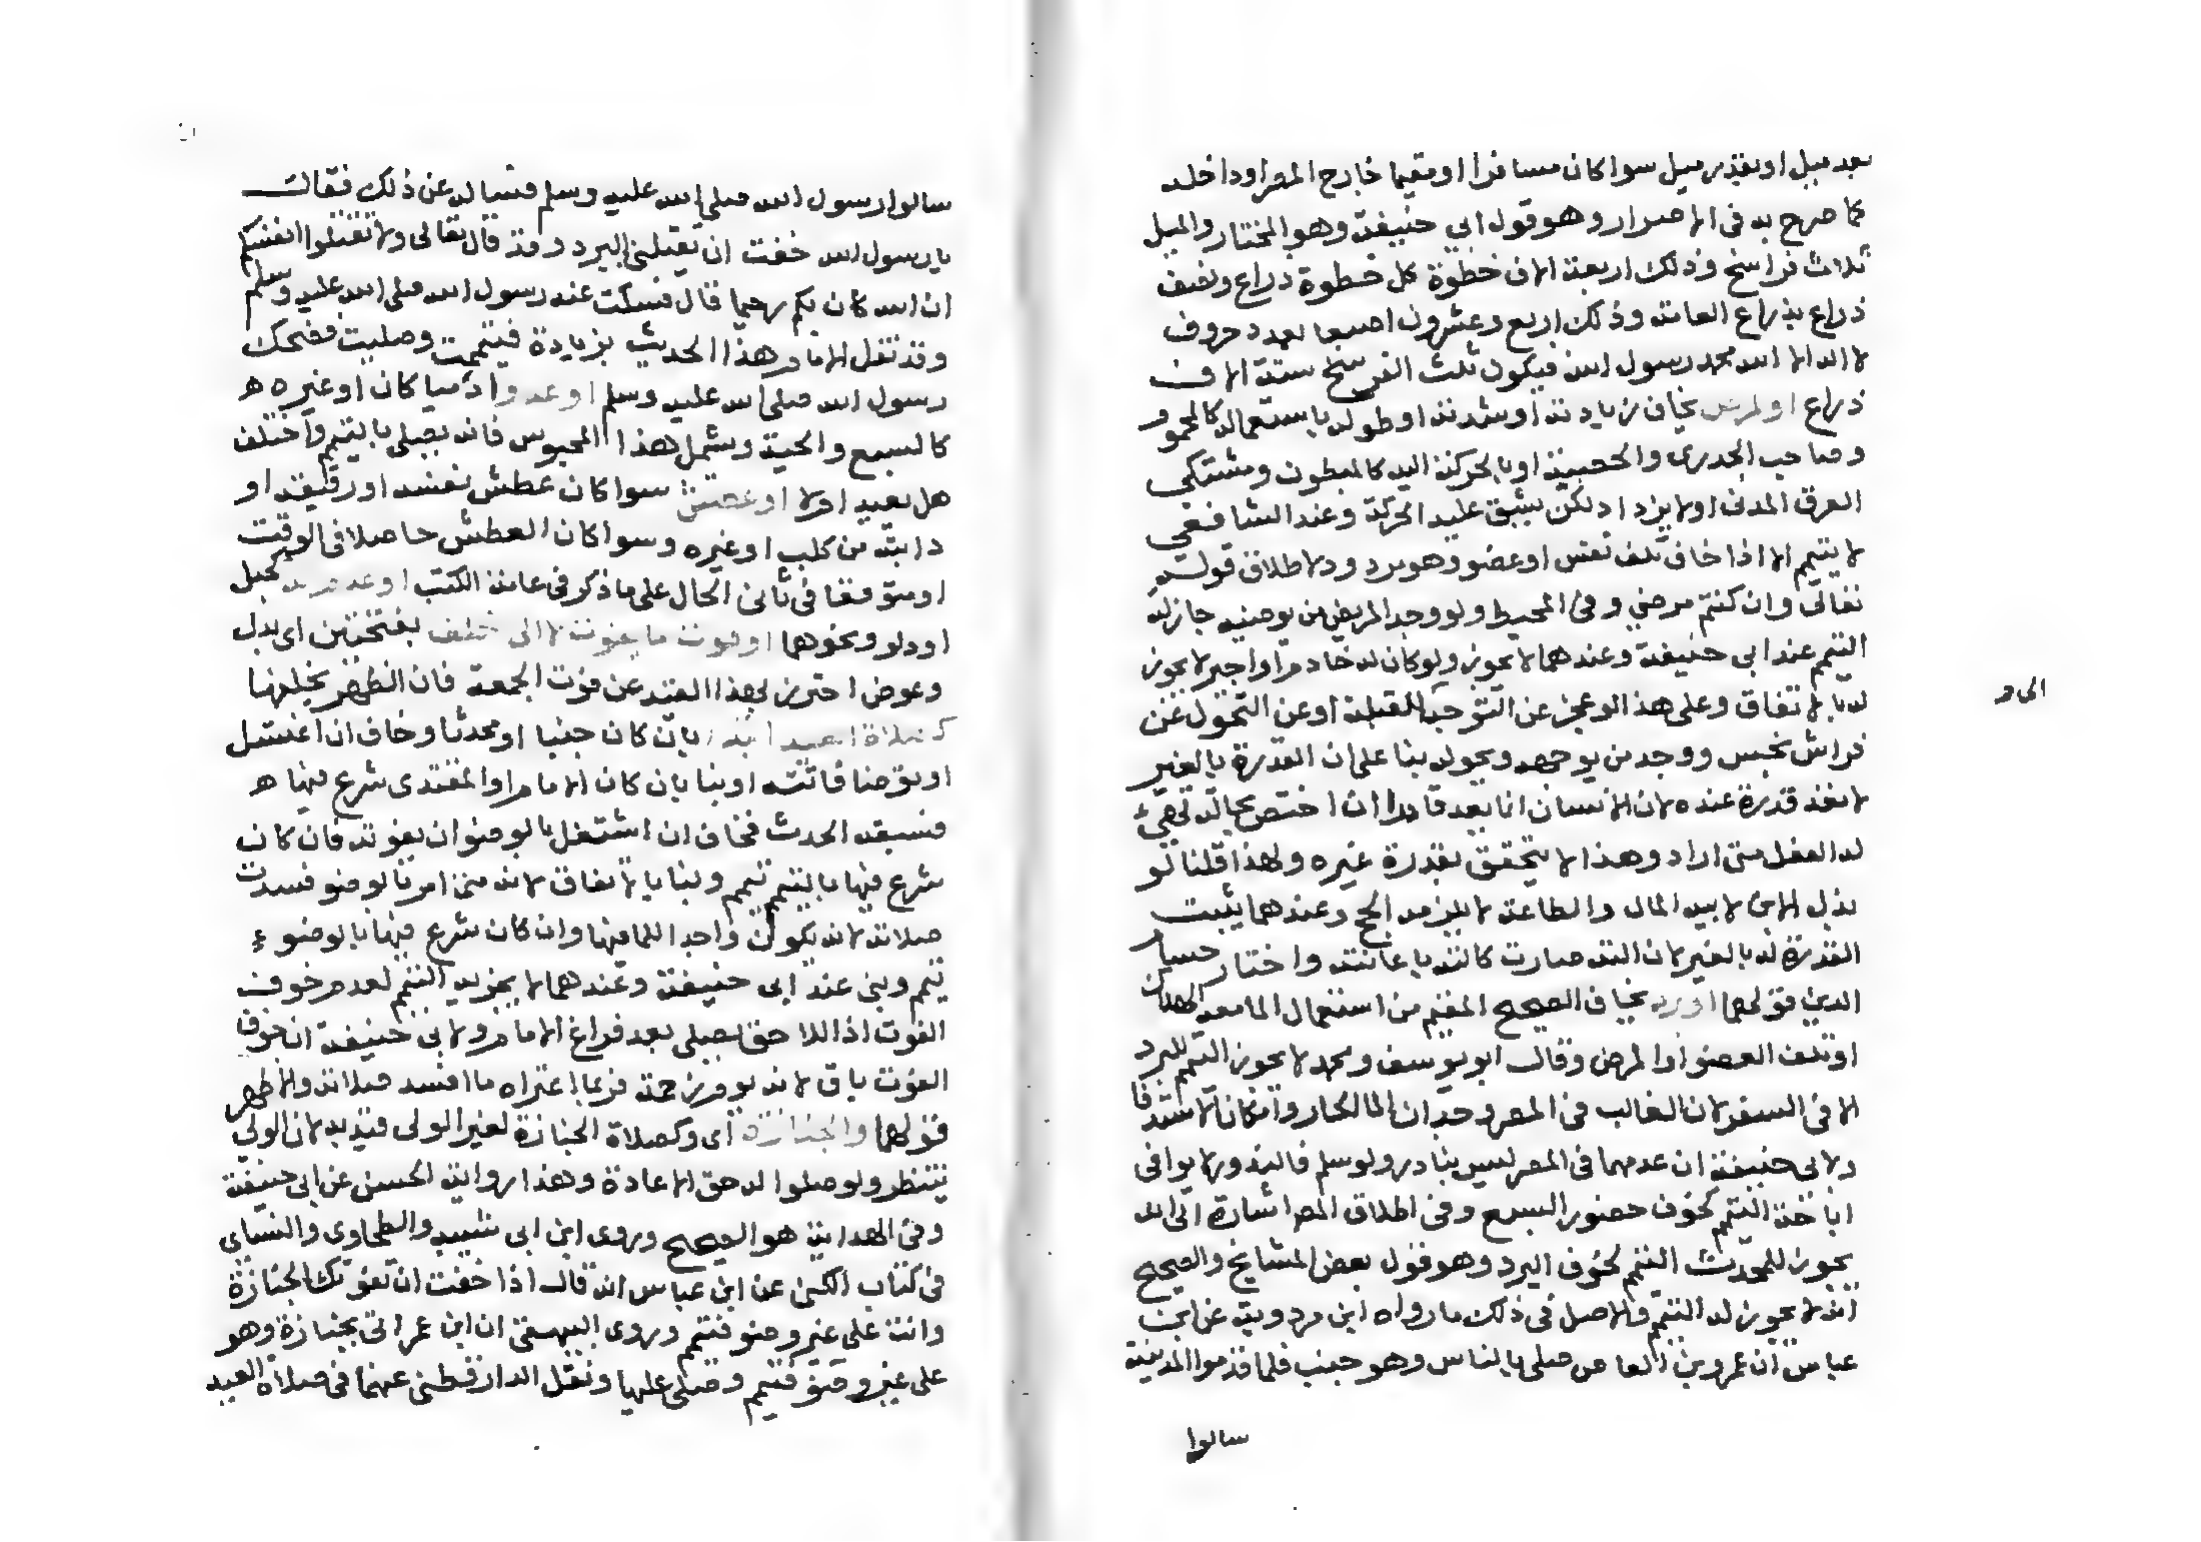 بعد ميل او بقدر ميل سوا كان مسافرا او مقيما خارج المصر او داخله
كما صرح به في الاصرار وهو قول ابي حنيفة وهو المختار والميل
ثلاث فراسخ وذلك اربعة الاف خطوة كل خطوة ذراع ونصف
ذراع بذراع العامة وذلك اربع وعشرون اصبعا بعدد حروف
لا اله الا الله محمد رسول الله فيكون ثلث الفرسخ ستة الاف
ذراع او لمرض يخاف زيادته او شدته او طوله باستعماله كالمحموم
وصاحب الجدري والحصبة او بالحركة اليه كالمبطون ومشتكي
العرق المدني او لا يزداد لكن يشق عليه الحركة وعند الشافعي
لا يتيمم الا اذا خاف تلف نفس او عضو وهو مردود لاطلاق قوله
تعالى وان كنتم مرضي وفي المحيط ولو وجد المريض من يوضيه جاز له
التيمم عند ابي حنيفة وعندهما لا يجوز ولو كان له خادم او اجير لا يجوز
له بالاتفاق وعلى هذا لو عجز عن التوجه القبلة او عن التحول عن
فراش نجس ووجد من يوجهه ويحوله بنا على ان القدرة بالغير
لا تعد قدرة عنده لان الانسان انما يعد قادرا ان اختص بحالة تهيئ
له الفعل متى اراد وهذا لا يتحقق بقدرة غيره ولهذا قلنا لو
بذل الابن لابيه المال والطاعة لا يلزمه الحج وعندهما يثبت
القدرة له بالغير لان الته صارت كالته باعانته واختار حسام
الدين قولهما او برد يخاف الصحيح المقيم من استعمال الما معه الهلاك
او تلف العضو او المرض وقال ابو يوسف ومحمد لا يجوز التيمم للبرد
الا في السفر لان الغالب في المصر وجدان الما الحار وامكان الاستدفا
ولابي حنيفة ان عدمهما في المصر ليس بنادر ولو سلم فالندور لا ينافي
اباحة التيمم كخوف حضور السبع وفي اطلاق المص اشارة الى انه
يجوز للمحدث التيمم لخوف البرد وهو قول بعض المشايخ والصحيح
انه لا يجوز له التيمم والاصل في ذلك ما رواه ابن مردويه عن ابن
عباس ان عمرو بن العاص صلى بالناس وهو جنب فلما قدموا المدينة
سالوا
سالوا رسول الله صلى الله عليه وسلم فساله عن ذلك فقال
يا رسول الله خفت ان يقتلني البرد وقد قال تعالى ولا تقتلوا انفسكم
ان الله كان بكم رحيما قال فسكت عنه رسول الله صلى الله عليه وسلم
وقد نقل الامام هذا الحديث بزيادة فتيممت وصليت فضحك
رسول الله صلى الله عليه وسلم او عدو ادميا كان او غيره ه
كالسبع والحية ويشمل هذا المحبوس فانه يصلي بالتيمم واختلف
هل يعيد ام لا او عطش سوا كان عطش نفسه او رفيقه او
دابته من كلب او غيره وسوا كان العطش حاصلا في الوقت
او متوقعا في ثاني الحال على ما ذكر في عامة الكتب او عدم كحبل
او دلو ونحوهما او لفوت ما يفوت لا الى خلف بفتحتين اي بدل
وعوض احترز بهذا القيد عن فوت الجمعة فان الظهر يخلفها
كصلاة العيد ابتدا بان كان جنبا او محدثا وخاف ان اغتسل
او توضا فاتته او بنا بان كان الامام او المقتدي شرع فيها ه
فسبقه الحدث فخاف ان اشتغل بالوضو ان يفوته فان كان
شرع فيها بالتيمم تيمم وبنا بالاتفاق لانه متى امر بالوضو فسدت
صلاته لانه يكون واجد الما فيها وان كان شرع فيها بالوضوء
تيمم وبنى عند ابي حنيفة وعندهما لا يجزيه التيمم لعدم خوف
الفوت اذ اللاحق يصلي بعد فراغ الامام ولابي حنيفة ان خوف
الفوت باق لانه يوم زحمة فربما اعتراه ما افسد صلاته والاظهر
قولهما والجنازة اي وكصلاة الجنازة لغير الولي قيد به لان الولي
ينتظر ولو صلوا له حق الاعادة وهذا رواية الحسن عن ابي حنيفة
وفي الهداية هو الصحيح وروى ابن ابي شيبه والطحاوي والنساي
في كتاب الكنى عن ابن عباس انه قال اذا خفت ان تفوتك الجنازة
وانت على غير وضو فتيمم وروى البيهقي ان ابن عمر اتى بجنازة وهو
على غير وضو فتيمم وصلى عليها ونقل الدارقطني عنهما في صلاة العيد